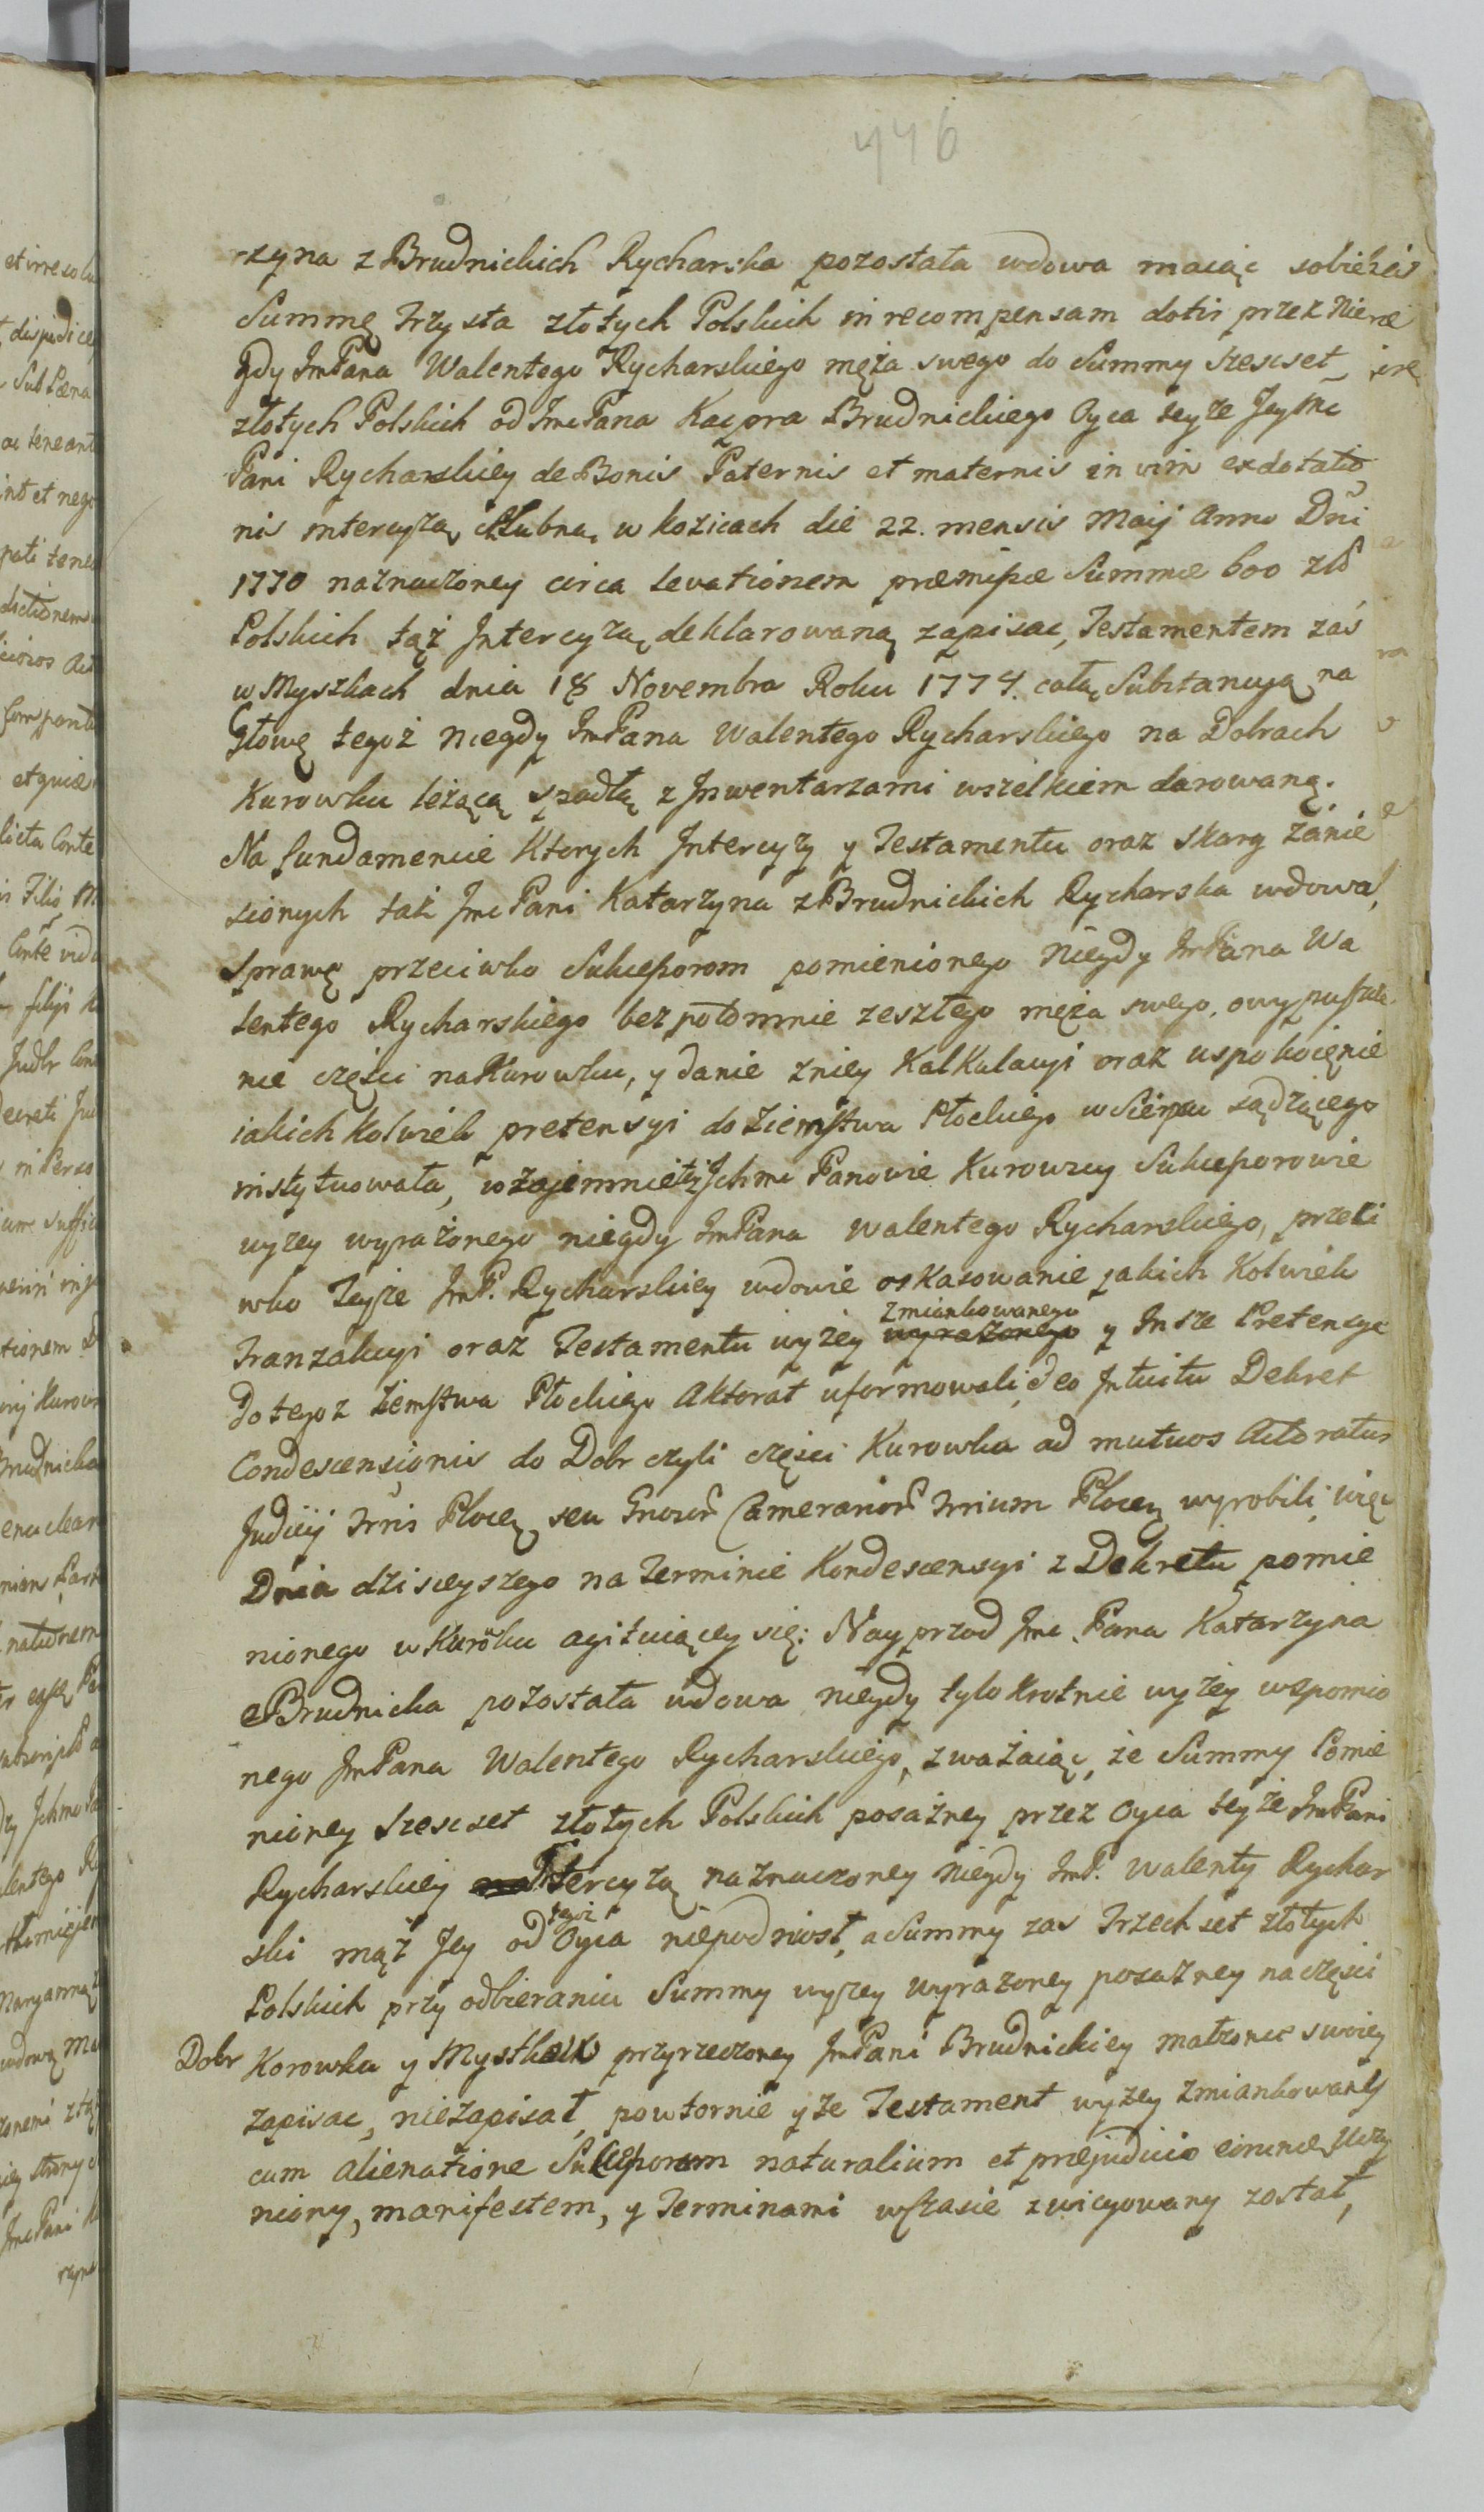 446
rzyna z Brudnickich Rycharska pozostała wdowa maiąc sobie
Summę trzysta złotych Polskich in recompensam dotis przez Nie
gdy ImPana Walentego Rycharskiego męża swego do Summy szescset
złotych Polskich od ImcPana Kacpra Brudnickiego Oyca teyże Jeymc
Pani Rycharskiey de Bonis Paternis et maternis in vim exdotatio
nis intercyzą szlubną w Kozicach die 22. mensis Maij Anno Dni
1770 naznaczoney circa levationem præmissæ Summæ 600 zło
Polskich tąż Intercyzą deklarowaną zapisac, Testamentem zaś
w Myszkach dnia 18 Novembra Roku 1774. całą Substancyą na
Głowę tegoż niegdy ImPana Walentego Rycharskiego na Dobrach
Kurowku leżącą spadłą z Inwentarzami wszelkiem darowaną.
Na fundamencie Ktorych Intercyzy y Testamentu oraz skarg zanie
sionych taż JmcPani Katarzyna z Brudnickich Rycharska wdowa,
sprawę przeciwko Sukcessorom pomienionego niegdy ImPana Wa
lentego Rycharskiego bezpotomnie zeszłego męża swego, o wypuszcze
nie części na Kurowku, y danie z niey Kalkulacyi oraz uspokoięnie
iakichkolwiek pretensyi do Ziemstwa Płockiego w Sierpcu sądzącego
instytuowała, wzajemnie też Ichmc Panowie Kurowscy Sukcessorowie
wyzey wyrażonego niegdy ImPana Walentego Rycharskiego, przeci
wko Teyże ImP. Rycharskiey wdowie o skasowanie jakich Kolwiek
Zmiankowanego
Tranzakcyi oraz Testamentu wyżey wyrażonego y Insze Pretensye
do tegoz Ziemstwa Płockiego Aktorat uformowali, deo Intuitu Dekret
Condescensionis do Dobr czyli części Kurowka ad mutuos Actoratus
Judicij Trris Plocen seu Gnosor Camerarior Trrium Plocen wyrobili, więc
Dnia dzisieyszego na Terminie Kondescensyi z Dekretu pomie
nionego w Kurowku agituiącey się: Nayprzod Jmc Pana Katarzyna
Brudnicka pozostała wdowa niegdy tylokrotnie wyżey wspomio
nego ImPana Walentego Rycharskiego, zważaiąc, że Summy Pomie
nioney szescset złotych Polskich posażney przez Oyca teyże ImPani
Rycharskiey Intercyzą naznaczoney niegdy ImP. Walenty Rychar
tegoż
ski mąż Jey od Oyca niepodniosł, a Summy zas Trzechset złotych
Polskich przy odbieraniu Summy wyzey wyrazoney posażney na części
Dobr Korowka y Mystkow przyrzeczoney ImPani Brudnickiey małzonce swoiey
zapisac, niezapisał, powtornie y że Testament wyżey zmiankowany
cum alienatione Sukcessorum naturalium et præjudicio eorum uczy
niony, manifestem, y Terminami w czasie zwicyowany został,